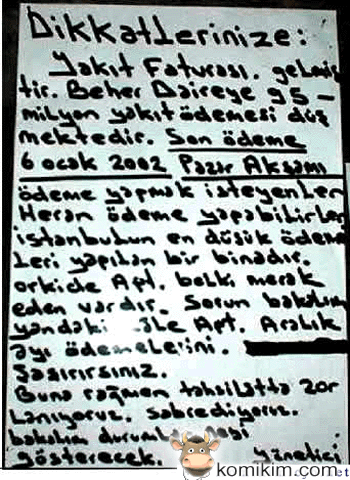 Dikkatlerinize:
Yakıt Faturası. gelmiş
tir. Beher Daireye 95-
milyon yakıt ödemesi düş
mektedir. Son ödeme
6 ocak 2002 Pazar Akşamı
ödeme yapmak isteyenler
Heran ödeme yapabilirler
istanbulun en düşük ödeme
leri yapılan bir binadır.
orkide Apt. belki merak
eden vardır. Sorun bakalım
yandaki Apt. Aralık
ayı ödemelerini.
Şaşırırsınız.
Buna rağmen tahsilatta zor
lanıyoruz. Sabrediyoruz.
bakalım
gösterecek. yönetici
komikim.com